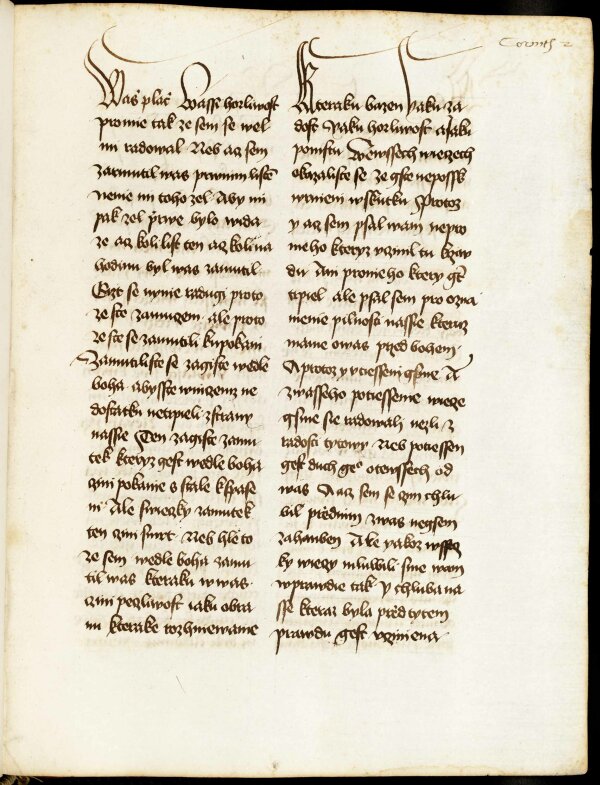 Corinth 2
Waś plać Wasse horliwost
promie tak ze sem se wel
mi radowal Neb acz sem
zarmutil was prwnim listē
nenie mi toho zel Aby mi
pak zel prwe bylo wida
ze acz koli list ten acz koli na
hodinu byl was zarmutil
Gizt se nynie radugi proto
ze ste zarmuczeni ale proto
ze ste se zarmutili ku pokani
Zarmutiliste se zagiste wedle
boha abysste w niczemz ne
dostatku netrpieli z strany
nassie Ten zagiste zarmu
tek kteryz gest wedle boha
czini pokanie s stale k spase
ni Ale swieczky zamutek
ten czini smrt Neb hle to
ze sem wedle boha zarmu
til was kteraku w was
czini peczliwost iaku obra
nu kterake rozhniewanie
Kteraku bazen yaku za
dost Yaku horliwost a yaku
pomstu Wewssech wieczech
okazaliste se ze gste neposskw
rnieni w skutku Protoz
y acz sem psal wam nepro
nieho kteryz vczinil tu krziw
du Ani pronieho ktery gt
trpiel ale psal sem pro ozna
menie pilnosti nassie kteruz
mame o was przed bohem
A protoz y vtiesseni gsme A
z wasseho potiessenie wiecze
gsme sie radowali nezli z
radosti tytowy Neb potiessen
gest duch geo ote wssech od
was A acz sem se czim chlu
bil przed nim z was negsem
zahanben Ale yakoz wssecz
ky wieczy mluwili sme wam
w prawdie tak Y chluba na
sse kteraz byla przed tytem
prawdu gest vczinena